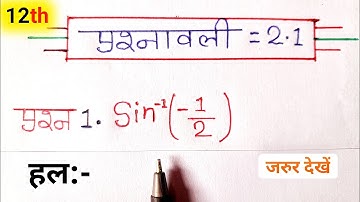 12th
प्रश्नावली = 2.1
प्रश्न 1. Sin⁻¹(-1/2)
हल:-
जरुर देखें